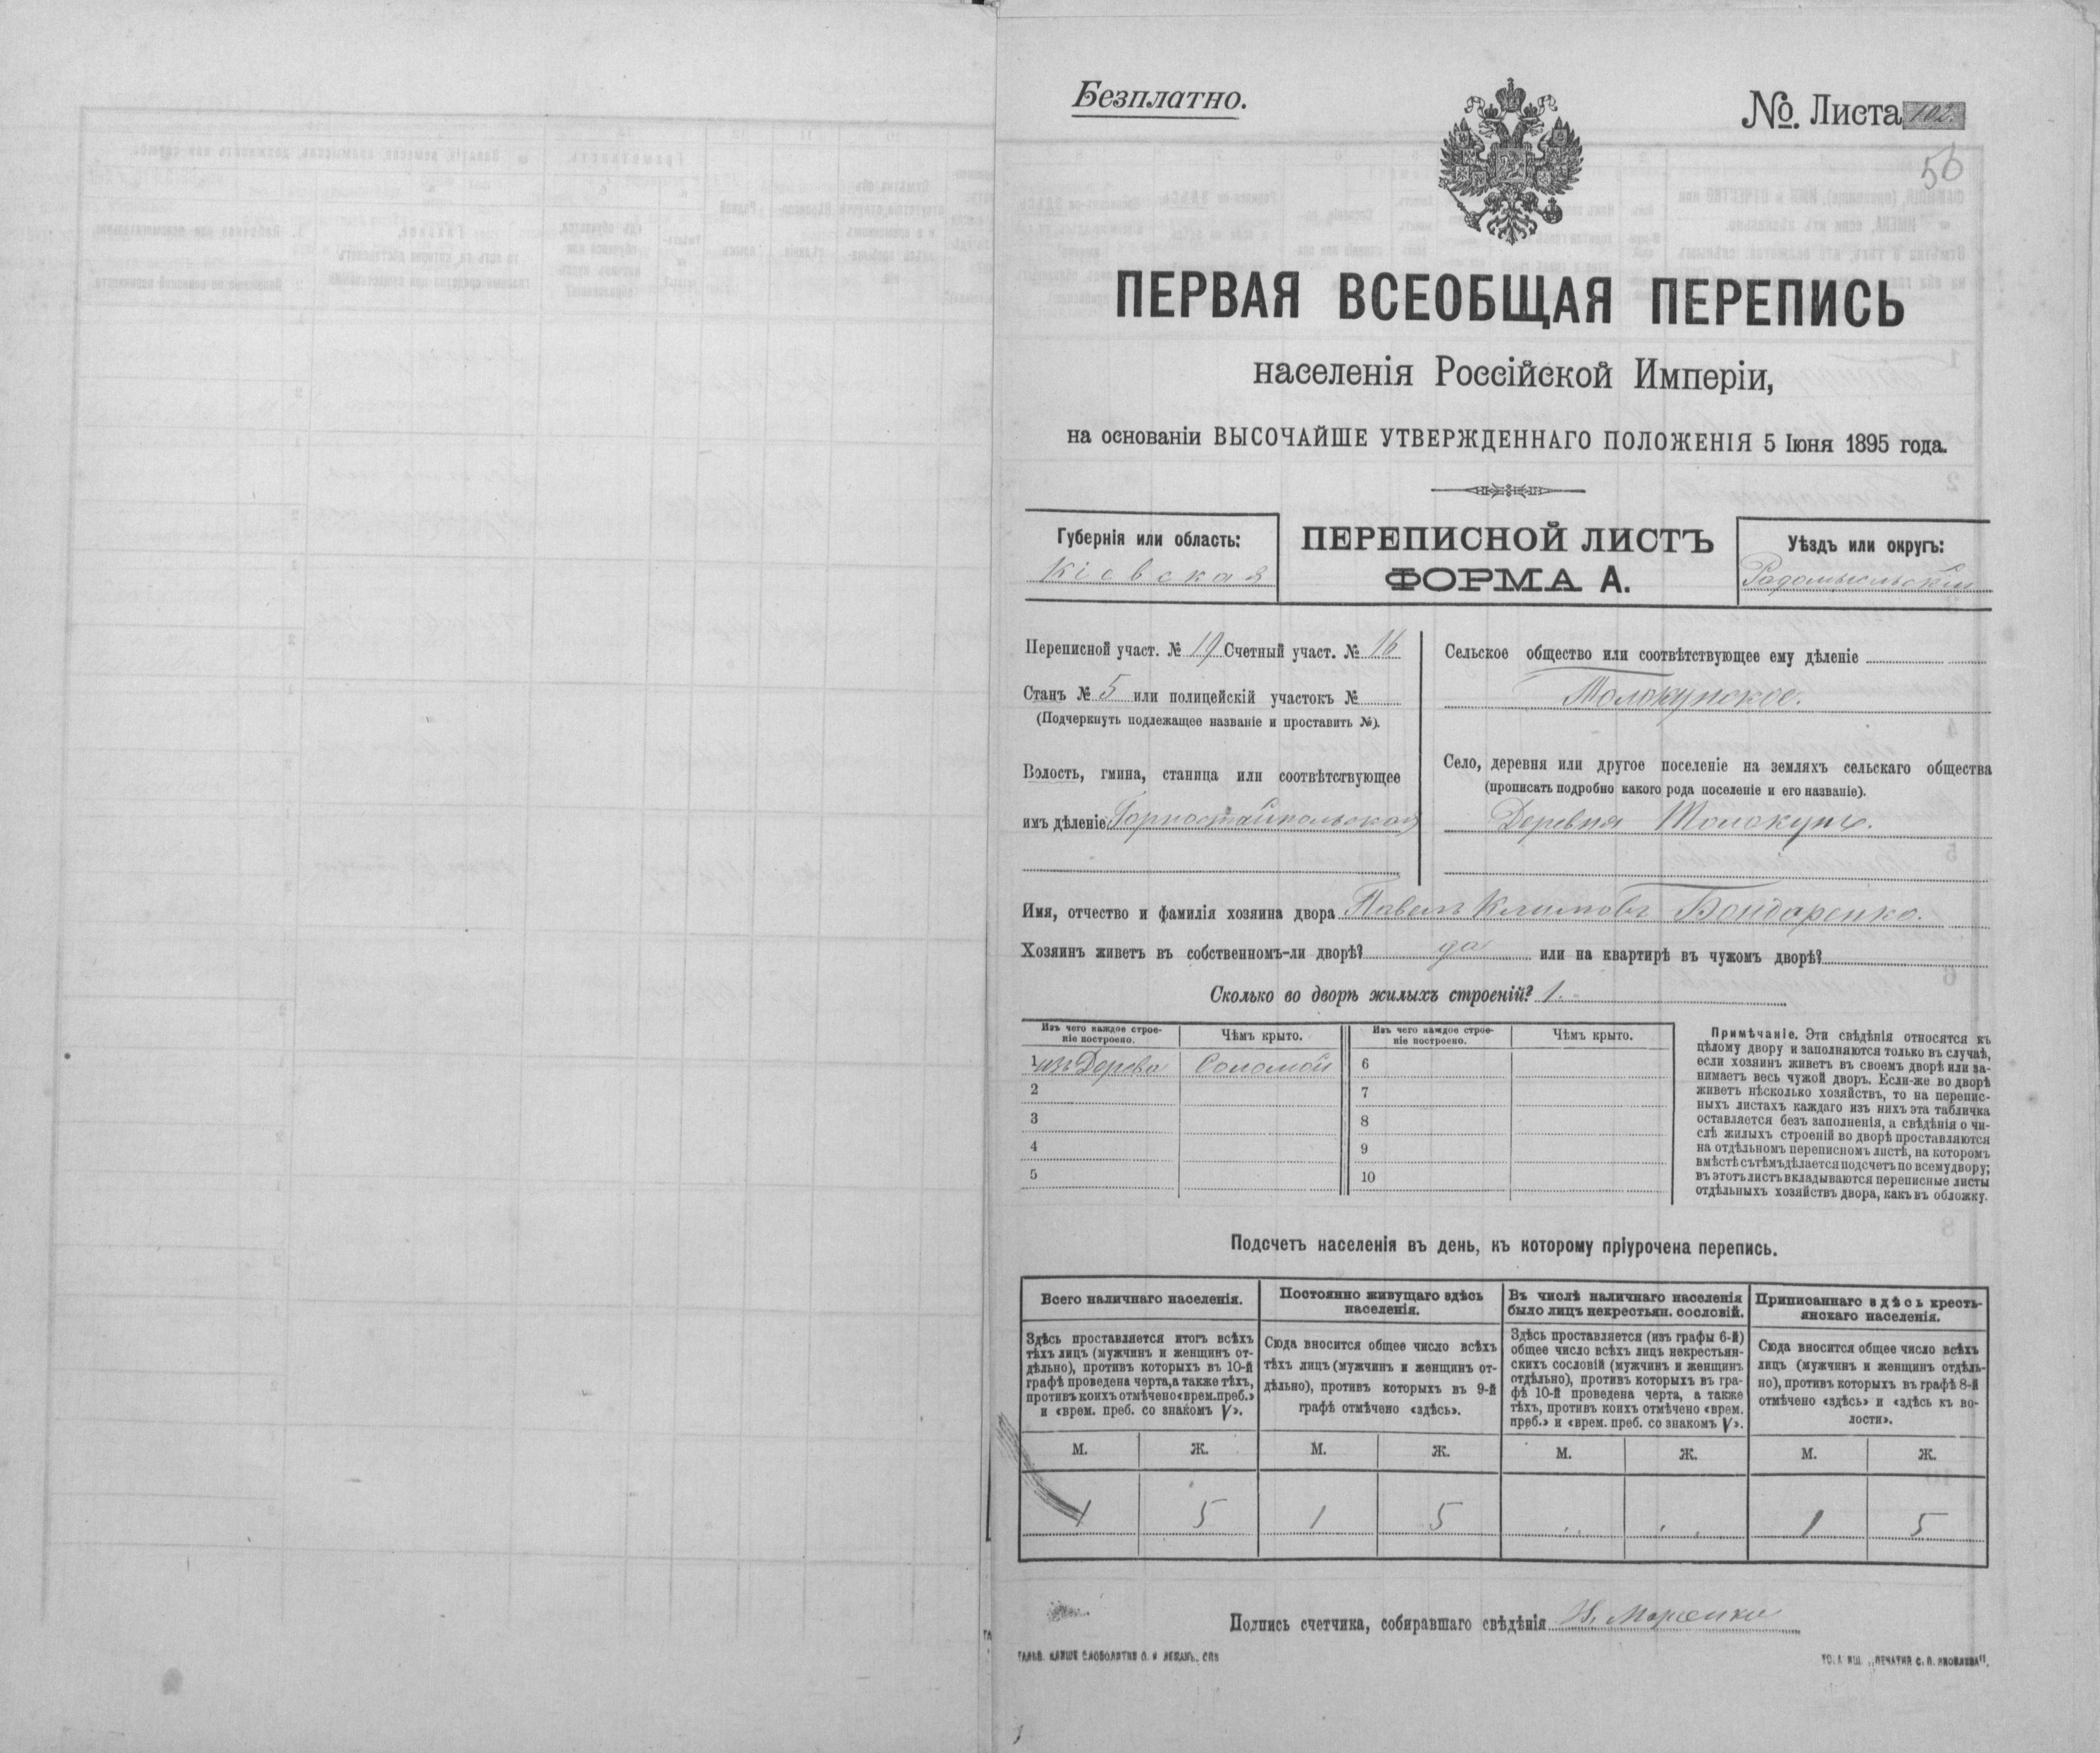 Безплатно.
№. Листа 102.
56
ПЕРВАЯ ВСЕОБЩАЯ ПЕРЕПИСЬ
населенія Россійской Имперіи,
на основаніи ВЫСОЧАЙШЕ УТВЕРЖДЕННАГО ПОЛОЖЕНІЯ 5 Іюня 1895 года.
Губернія или область:
Кіевская
ПЕРЕПИСНОЙ ЛИСТЪ
ФОРМА А.
Уѣздъ или округъ:
Радомысльскій
Переписной участ. № 19 Счетный участ. № 16
Станъ № 5 или полицейскій участокъ №
(Подчеркнуть подлежащее названіе и проставить №).
Волость, гмина, станица или соотвѣтствующее
имъ дѣленіе Горностайпольская
Сельское общество или соотвѣтствующее ему дѣленіе
Толокунское.
Село, деревня или другое поселеніе на земляхъ сельскаго общества
(прописать подробно какого рода поселеніе и его названіе).
Деревня Толокунь.
Имя, отчество и фамилія хозяина двора Павелъ Климовъ Бондаренко.
Хозяинъ живетъ въ собственномъ-ли дворѣ? да или на квартирѣ въ чужомъ дворѣ?
Сколько во дворѣ жилыхъ строеній? 1.
Изъ чего каждое строе-
ніе построено.
Чѣмъ крыто.
Изъ чего каждое строе-
ніе построено.
Чѣмъ крыто.
1 изъ Дерева Соломой 6
2 7
3 8
4 9
5 10
Примѣчаніе. Эти свѣдѣнія относятся къ
цѣлому двору и заполняются только въ случаѣ,
если хозяинъ живетъ въ своемъ дворѣ или за-
нимаетъ весь чужой дворъ. Если-же во дворѣ
живетъ нѣсколько хозяйствъ, то на перепис-
ныхъ листахъ каждаго изъ нихъ эта табличка
оставляется безъ заполненія, а свѣдѣнія о чи-
слѣ жилыхъ строеній во дворѣ проставляются
на отдѣльномъ переписномъ листѣ, на которомъ
вмѣстѣ съ тѣмъ дѣлается подсчетъ по всему двору;
въ этотъ листъ вкладываются переписные листы
отдѣльныхъ хозяйствъ двора, какъ въ обложку.
Подсчетъ населенія въ день, къ которому пріурочена перепись.
Всего наличнаго населенія.
Здѣсь проставляется итогъ всѣхъ
тѣхъ лицъ (мужчинъ и женщинъ от-
дѣльно), противъ которыхъ въ 10-й
графѣ проведена черта, а также тѣхъ,
противъ коихъ отмѣчено «врем. преб.»
и «врем. преб. со знакомъ V».
Постоянно живущаго здѣсь
населенія.
Сюда вносится общее число всѣхъ
тѣхъ лицъ (мужчинъ и женщинъ от-
дѣльно), противъ которыхъ въ 9-й
графѣ отмѣчено «здѣсь».
Въ числѣ наличнаго населенія
было лицъ некрестьян. сословій.
Здѣсь проставляется (изъ графы 6-й)
общее число всѣхъ лицъ некрестьян-
скихъ сословій (мужчинъ и женщинъ
отдѣльно), противъ которыхъ въ гра-
фѣ 10-й проведена черта, а также
тѣхъ, противъ коихъ отмѣчено «врем.
преб.» и «врем. преб. со знакомъ V».
Приписаннаго здѣсь кресть-
янскаго населенія.
Сюда вносится общее число всѣхъ
лицъ (мужчинъ и женщинъ отдѣль-
но), противъ которыхъ въ графѣ 8-й
отмѣчено «здѣсь» и «здѣсь къ во-
лости».
М. Ж. М. Ж. М. Ж. М. Ж.
1 5 1 5 1 5
Подпись счетчика, собиравшаго свѣдѣнія Н. Марсенко